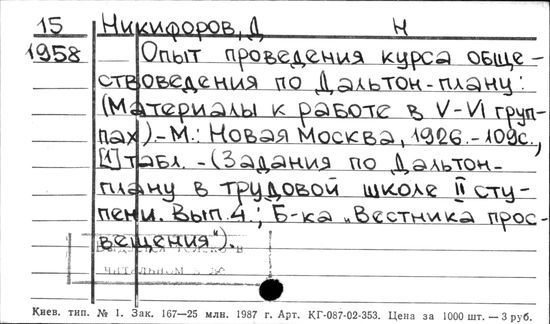 15 Никифоров, Д Н
1958 Опыт проведения курса обще-
ствоведения по Дальтон-плану:
(Материалы к работе в V-VI груп-
пах).-М.: Новая Москва, 1926.-109с.,
[1] табл. -(Задания по Дальтон-
плану в трудовой школе II сту-
пени. Вып. 4.; Б-ка „Вестника прос-
вещения").
читальном
Киев. тип. № 1. Зак. 167—25 млн. 1987 г. Арт. КГ-087-02-353. Цена за 1000 шт. — 3 руб.